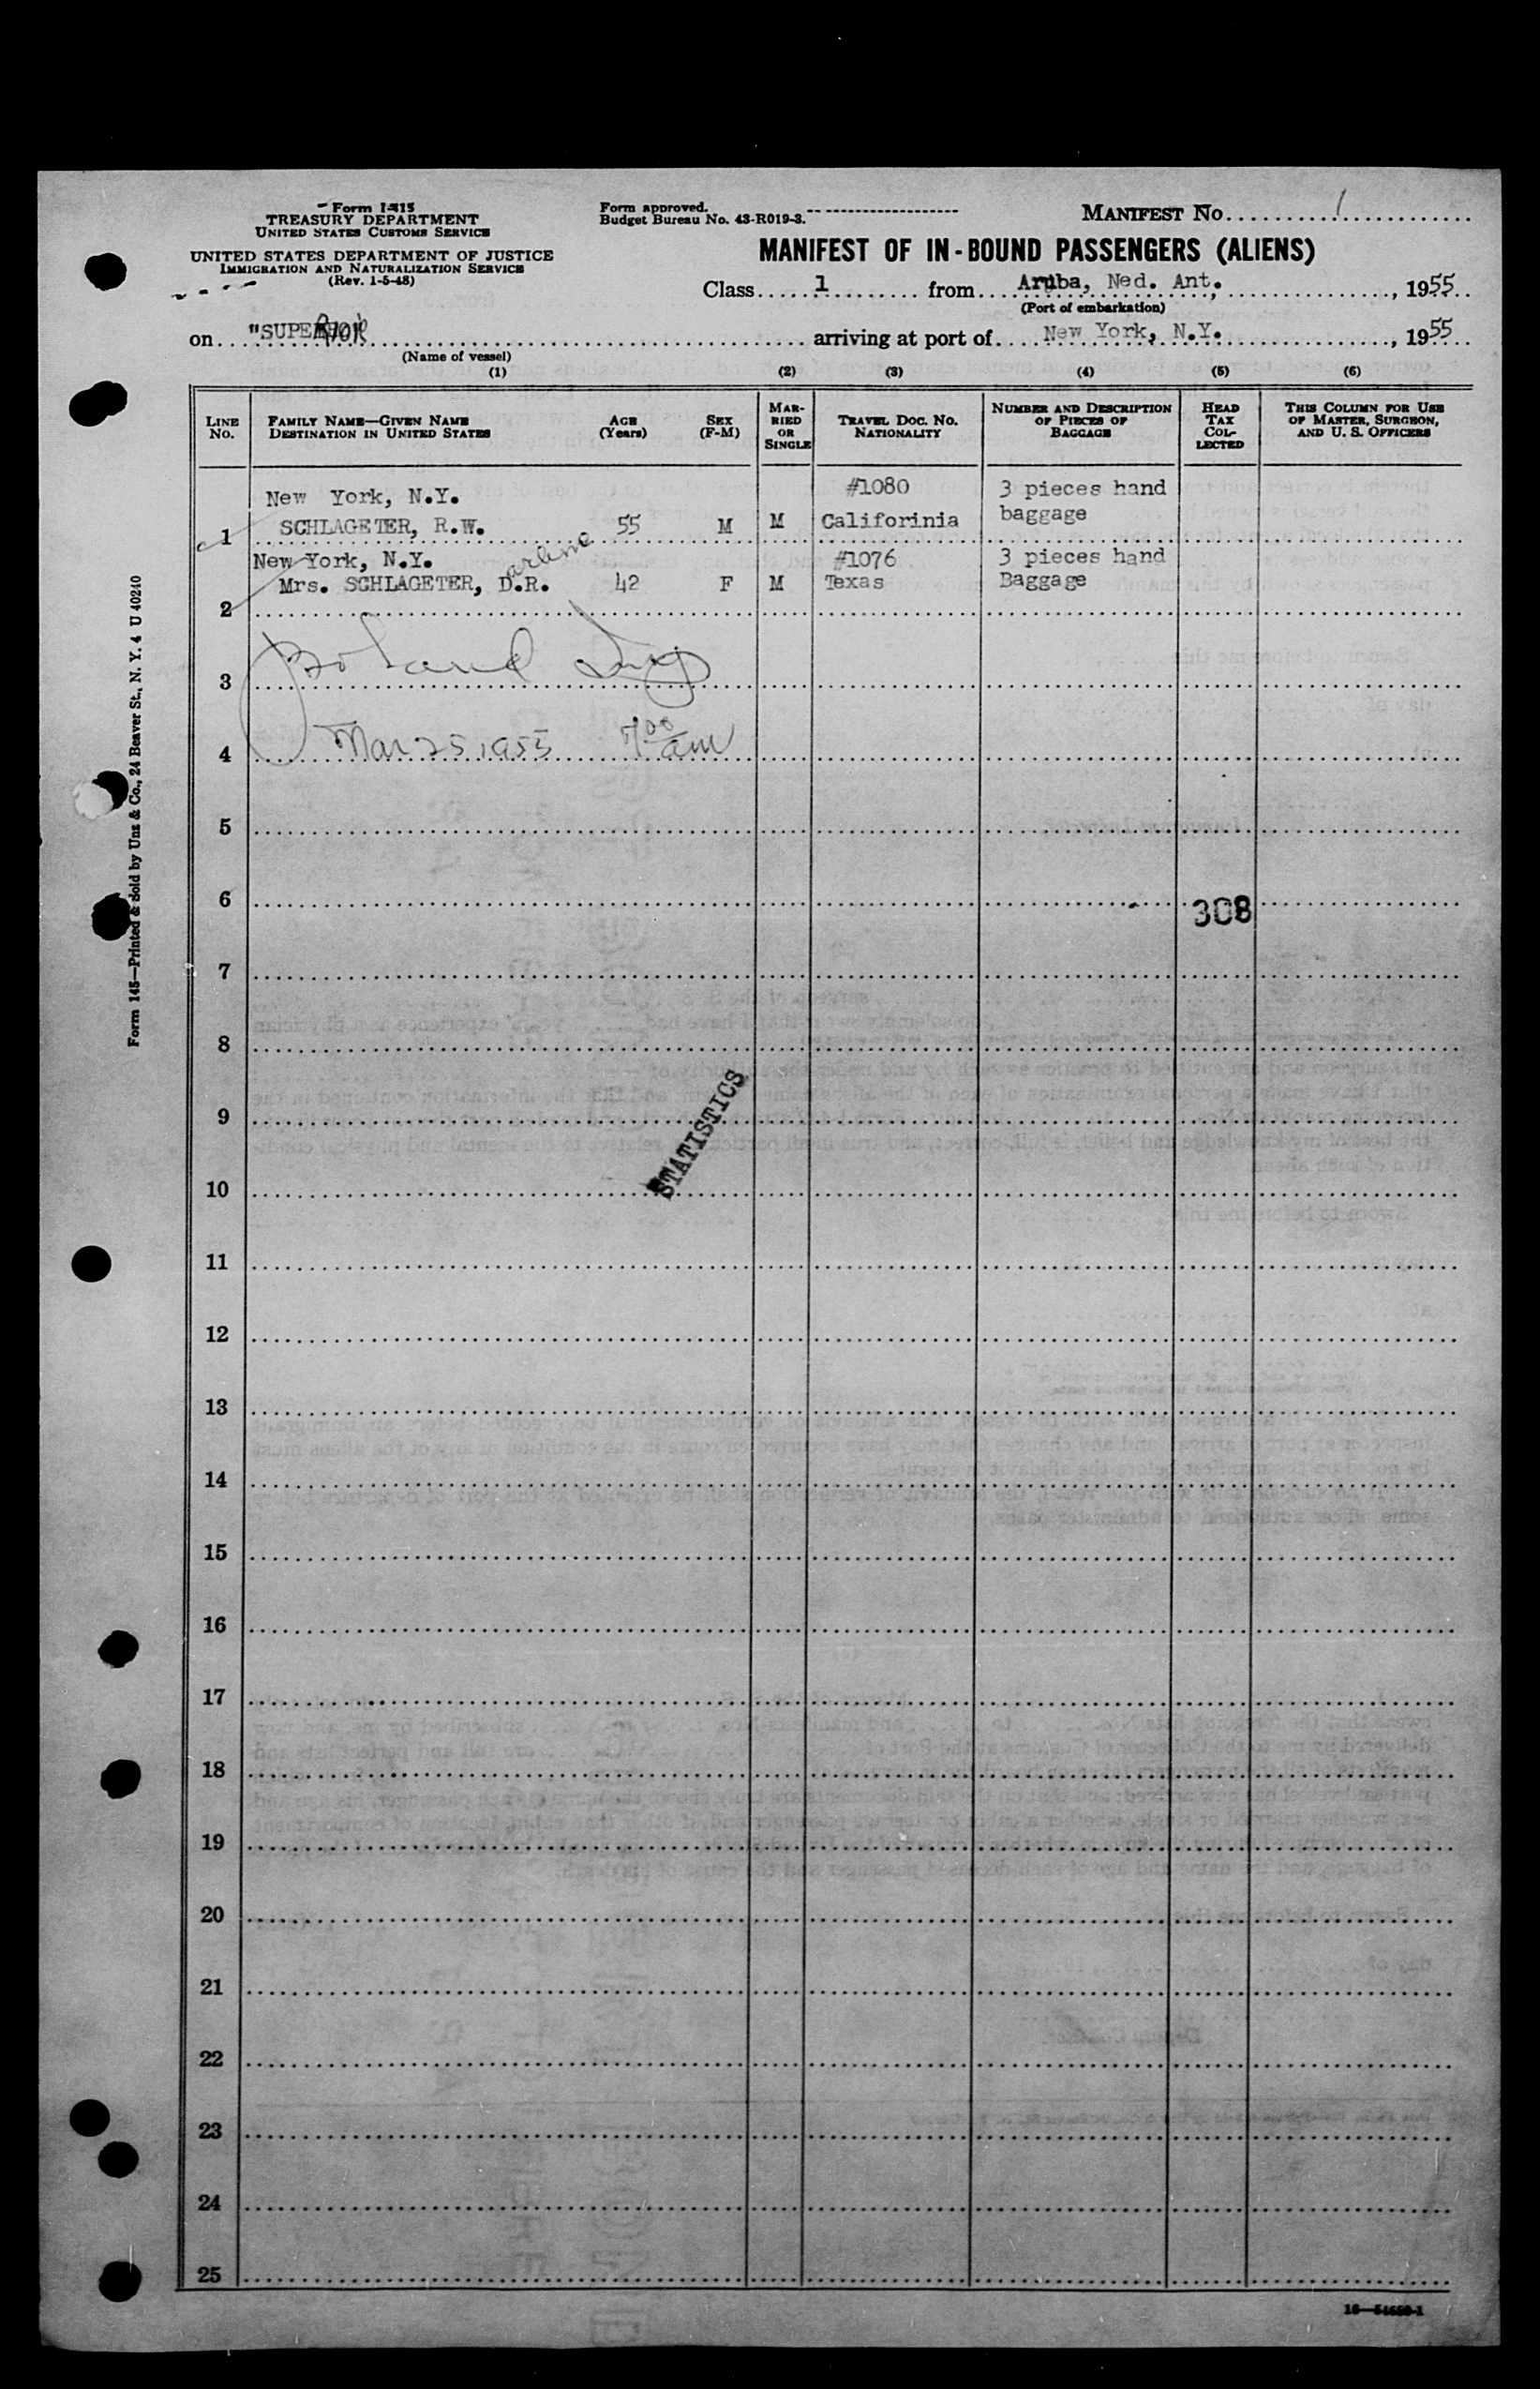 Form I-415
TREASURY DEPARTMENT
UNITED STATES CUSTOMS SERVICE
UNITED STATES DEPARTMENT OF JUSTICE
IMMIGRATION AND NATURALIZATION SERVICE
(Rev. 1-5-48)
Form approved.
Budget Bureau No. 43-R019-3.
MANIFEST NO. 1
MANIFEST OF IN-BOUND PASSENGERS (ALIENS)
Class 1 from Aruba, Ned. Ant., 1955
(Port of embarkation)
on "SUPERIOR arriving at port of New York, N.Y., 1955
(Name of vessel)
(1) (2) (3) (4) (5) (6)
LINE NO.
FAMILY NAME—GIVEN NAME
DESTINATION IN UNITED STATES
AGE (Years)
SEX (F-M)
MARRIED OR SINGLE
TRAVEL DOC. NO.
NATIONALITY
NUMBER AND DESCRIPTION OF PIECES OF BAGGAGE
HEAD TAX COLLECTED
THIS COLUMN FOR USE OF MASTER, SURGEON, AND U. S. OFFICERS
New York, N.Y. #1080 3 pieces hand
1 SCHLAGETER, R.W. 55 M M Califorinia baggage
New York, N.Y. arlene #1076 3 pieces hand
2 Mrs. SCHLAGETER, D.R. 42 F M Texas Baggage
3
4 Mar 25, 1955 7 00 am
5
6 308
7
8
9
STATISTICS
10
11
12
13
14
15
16
17
18
19
20
21
22
23
24
25
Form 145—Printed & Sold by Unz & Co., 24 Beaver St., N. Y. 4 U 40240